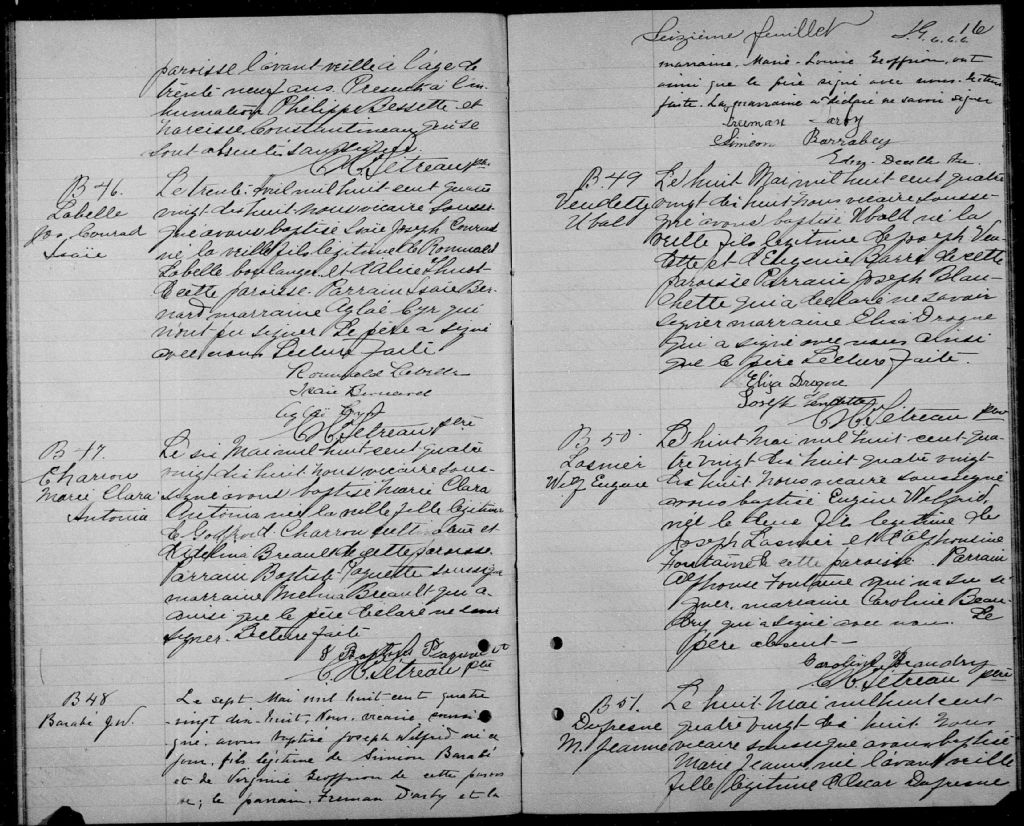 paroisse l'avant veille à l'age de
trente neuf ans. Presents à l'in-
humation Philippe Bessette et
Narcisse Constantineau qui se
sont absentés sans signer.
C. H. Tétreau ptre
B 46.
Labelle
Jos. Conrad
Isaïe
Le trente Avril mil huit cent quatre
vingt dix huit nous vicaire sousse-
gné avons baptisé Isaïe Joseph Conrad
né la veille fils légitime de Romuald
Labelle boulanger et d'Alice Huot
de cette paroisse. Parrain Isaïe Ber-
nard, marraine Aglaé Cyr qui
n'ont su signer Le père a signé
avec nous Lecture faite
Romuald Labelle
Isaïe Bernard
Aglaé Cyr
C. H. Tétreau ptre
B 47.
Charron
Marie Clara
Antonia
Le six Mai mil huit cent quatre
vingt dix huit nous vicaire sous-
signé avons baptisé Marie Clara
Antonia née la veille fille légitime
de Godfroid Charron cultivateur et
d'Edelina Breault de cette paroisse.
Parrain Baptiste Paquette soussigné
marraine Breault qui a
ainsi que le père déclaré ne savoir
signer. Lecture faite
J Baptiste Paquette
C. H. Tétreau ptre
B 48
Barabé J. W.
Le sept Mai mil huit cent quatre
vingt dix-huit, Nous, vicaire, soussi-
gné, avons baptisé Joseph Wilfrid né ce
jour, fils légitime de Simeon Barabé
et de Virginie Geoffrion de cette parois-
se; le parrain, Freman Darby et la
Seizième feuillet
16
marraine, Marie-Louise Geoffrion, ont
ainsi que le père signé avec nous. lecture
faite. La marraine a déclaré ne savoir signer
Freeman Darby
Simeon Barrabey
Edm. Decelle Ptre.
B 49
Vendette
Ubald
Le huit Mai mil huit cent quatre
vingt dix huit nous vicaire sousse-
gné avons baptisé Ubald né la
veille fils légitime de Joseph Ven-
dette et d'Eugenie Barré de cette
paroisse Parrain Joseph Blan-
chette qui a déclaré ne savoir
signer marraine Eliza Drogue
qui a signé avec nous ainsi
que le père Lecture faite.
Eliza Drogue
Joseph Vendette
C. H. Tétreau ptre
B 50
Lasmier
Wilf Eugene
Le huit Mai mil huit cent qua-
tre vingt dix huit quatre vingt
dix huit nous vicaire soussigné
avons baptisé Eugène Wilfrid,
né le deux fils légitime de
Joseph Lasmier et d'Alphonsine
Fontaine de cette paroisse. Parrain
Alphonse Fontaine qui n'a su si-
gner, marraine Caroline Beau-
dry qui a signé avec nous. Le
père absent—
Caroline Beaudry
C. H. Tétreau ptre
B 51.
Dufresne
M. Jeanne
Le huit Mai mil huit cent
quatre vingt dix huit nous
vicaire soussigné avons baptisé
Marie Jeanne née l'avant veille
fille légitime d'Oscar Dufresne